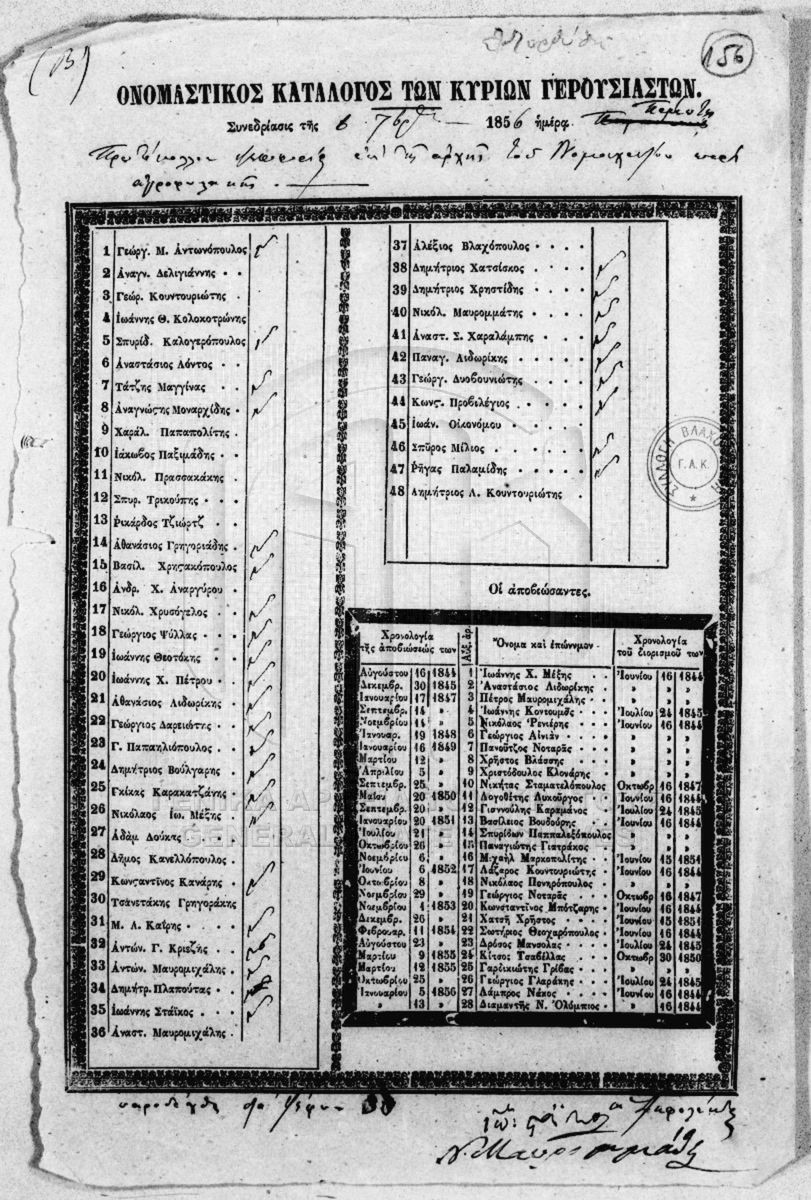 (Β)
156
ΟΝΟΜΑΣΤΙΚΟΣ ΚΑΤΑΛΟΓΟΣ ΤΩΝ ΚΥΡΙΩΝ ΓΕΡΟΥΣΙΑΣΤΩΝ.
Συνεδρίασις τῆς 6 7βρίου 1856 ἡμέρᾳ Πέμπτῃ
ἐπὶ τῆς ἀρχῆς τοῦ Νομοσχεδίου περὶ
ἀγροφυλακῆς
1 Γεώργ. Μ. Ἀντωνόπουλος
2 Ἀναγν. Δελιγιάννης
3 Γεώρ. Κουντουριώτης
4 Ἰωάννης Θ. Κολοκοτρώνης
5 Σπυρίδ. Καλογερόπουλος
6 Ἀναστάσιος Λόντος
7 Τάτζης Μαγγίνας
8 Ἀναγνώςης Μοναρχίδης
9 Χαράλ. Παπαπολίτης
10 Ἰάκωβος Παξιμάδης
11 Νικόλ. Πρασσακάκης
12 Σπυρ. Τρικούπης
13 Ῥικάρδος Τζιώρτζ
14 Ἀθανάσιος Γρηγοριάδης
15 Βασίλ. Χρηςακόπουλος
16 Ἀνδρ. Χ. Ἀναργύρου
17 Νικόλ. Χρυσόγελος
18 Γεώργιος Ψύλλας
19 Ἰωάννης Θεοτόκης
20 Ἰωάννης Χ. Πέτρου
21 Ἀθανάσιος Λιδωρίκης
22 Γεώργιος Δαρειώτης
23 Γ. Παπαηλιόπουλος
24 Δημήτριος Βούλγαρης
25 Γκίκας Καρακατζάνης
26 Νικόλαος Ἰω. Μέξης
27 Ἀδὰμ Δούκας
28 Δῆμος Κανελλόπουλος
29 Κωνςαντῖνος Κανάρης
30 Τσανετάκης Γρηγοράκης
31 Μ. Λ. Καΐρης
32 Ἀντών. Γ. Κριεζῆς
33 Ἀντών. Μαυρομιχάλης
34 Δημήτρ. Πλαπούτας
35 Ἰωάννης Στάϊκος
36 Ἀναστ. Μαυρομιχάλης
37 Ἀλέξιος Βλαχόπουλος
38 Δημήτριος Χατσίσκος
39 Δημήτριος Χρηστίδης
40 Νικόλ. Μαυρομμάτης
41 Ἀναστ. Σ. Χαραλάμπης
42 Παναγ. Λιδωρίκης
43 Γεώργ. Δυοβουνιώτης
44 Κωνς. Προβελέγιος
45 Ἰωάν. Οἰκονόμου
46 Σπῦρος Μίλιος
47 Ῥήγας Παλαμίδης
48 Δημήτριος Λ. Κουντουριώτης
ΣΥΛΛΟΓΗ ΒΛΑΧΟ
Γ.Α.Κ.
Οἱ ἀποβιώσαντες.
Χρονολογία τῆς ἀποβιώσεώς των Αὔξ. ἀρ. Ὄνομα καὶ ἐπώνυμον Χρονολογία τοῦ διορισμοῦ των
Αὐγούστου 16 1844 1 Ἰωάννης Χ. Μέξης Ἰουνίου 16 1844
Δεκεμβρ. 30 1845 2 Ἀναστάσιος Λιδωρίκης » » »
Ἰανουαρίου 17 1847 3 Πέτρος Μαυρομιχάλης » » »
Σεπτεμβρ. 14 » 4 Ἰωάννης Κοντουμᾶς Ἰουλίου 24 1845
Νοεμβρίου 14 » 5 Νικόλαος Ῥενιέρης Ἰουνίου 16 1844
Ἰανουαρ. 19 1848 6 Γεώργιος Αἰνιὰν » » »
Ἰανουαρίου 16 1849 7 Πανοῦτζος Νοταρᾶς » » »
Μαρτίου 12 » 8 Χρῆστος Βλάσσης » » »
Ἀπριλίου 5 » 9 Χριστόδουλος Κλονάρης » » »
Σεπτεμβρ. 25 » 10 Νικήτας Σταματελόπουλος Ὀκτωβρ 16 1847
Μαΐου 20 1850 11 Λογοθέτης Λυκοῦργος Ἰουνίου 16 1844
Σεπτεμβρ. 20 » 12 Γιαννούλης Καραμάνος Ἰουλίου 24 1845
Ἰανουαρίου 20 1851 13 Βασίλειος Βουδούρης Ἰουνίου 16 1844
Ἰουλίου 21 » 14 Σπυρίδων Παππαλεξόπουλος » » »
Ὀκτωβρίου 26 » 15 Παναγιώτης Γιατράκος » » »
Νοεμβρίου 6 » 16 Μιχαὴλ Μαρκοπολίτης Ἰουνίου 15 1851
Ἰουνίου 6 1852 17 Λάζαρος Κουντουριώτης Ἰουνίου 16 1844
Ὀκτωβρίου 8 » 18 Νικόλαος Πονηρόπουλος » » »
Νοεμβρίου 29 » 19 Γεώργιος Νοταρᾶς Ὀκτωβρ 16 1847
Νοεμβρίου 4 1853 20 Κωνσταντῖνος Μπότζαρης Ἰουνίου 16 1844
Δεκεμβρ. 26 » 21 Χατσῆ Χρῆστος Ἰουνίου 15 1851
Φεβρουαρ. 11 1854 22 Σωτήριος Θεοχαρόπουλος Ἰουνίου 16 1844
Αὐγούστου 23 » 23 Δρόσος Μανσολας Ἰουλίου 24 1845
Μαρτίου 9 1855 24 Κίτσος Τσαβέλλας Ὀκτωβρ 30 1850
Μαρτίου 12 1855 25 Γαρδικιώτης Γρίβας » » »
Ὀκτωβρίου 25 » 26 Γεώργιος Γλαράκης Ἰουλίου 24 1845
Ἰανουαρίου 5 1856 27 Λάμπρος Νάκος Ἰουνίου 16 1844
» 13 » 28 Διαμαντῆς Ν. Ὀλύμπιος » 16 1844